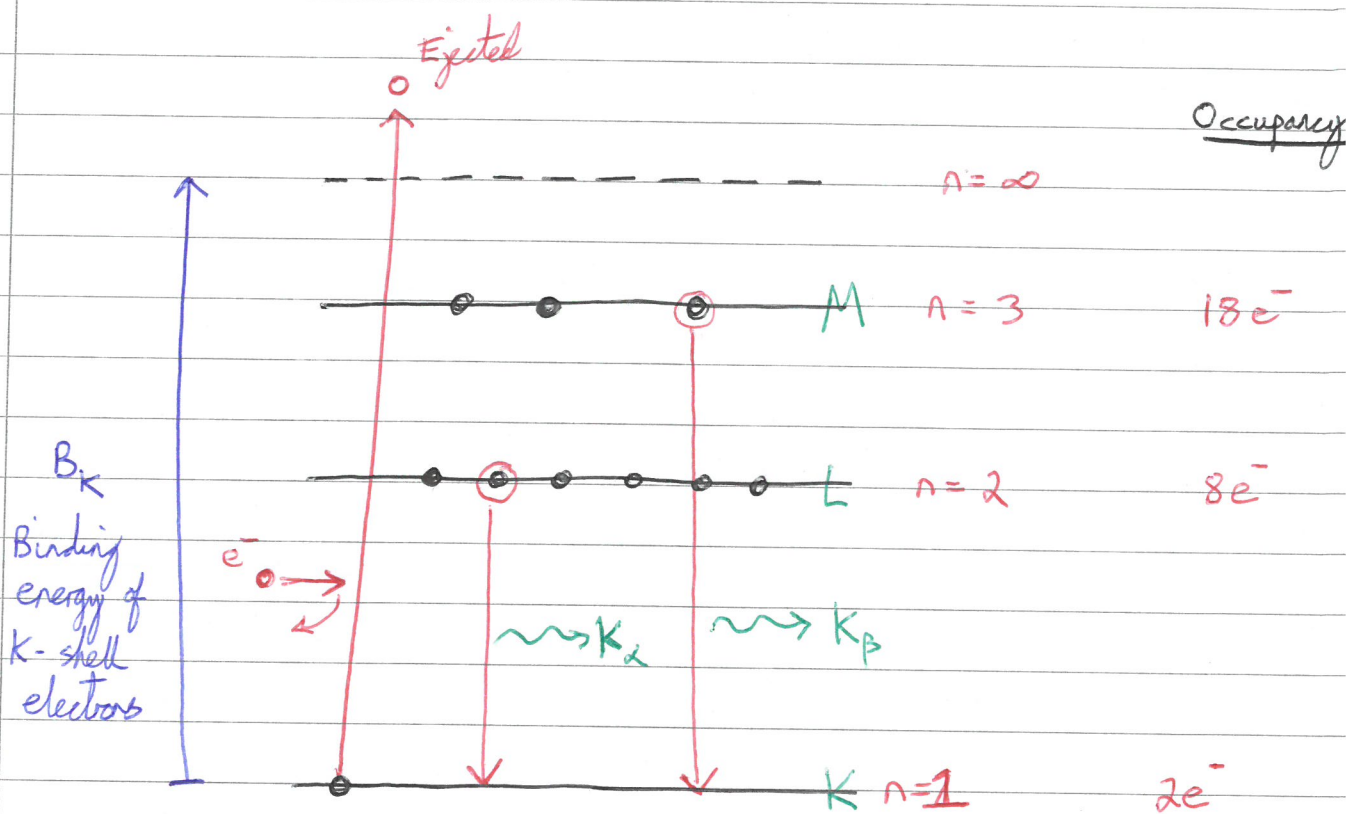 Ejected
Occupancy
n = ∞
M n = 3 18e⁻
B_K
L n = 2 8e⁻
Binding
energy of
K-shell
electrons
e⁻
K_α
K_β
K n=1 2e⁻